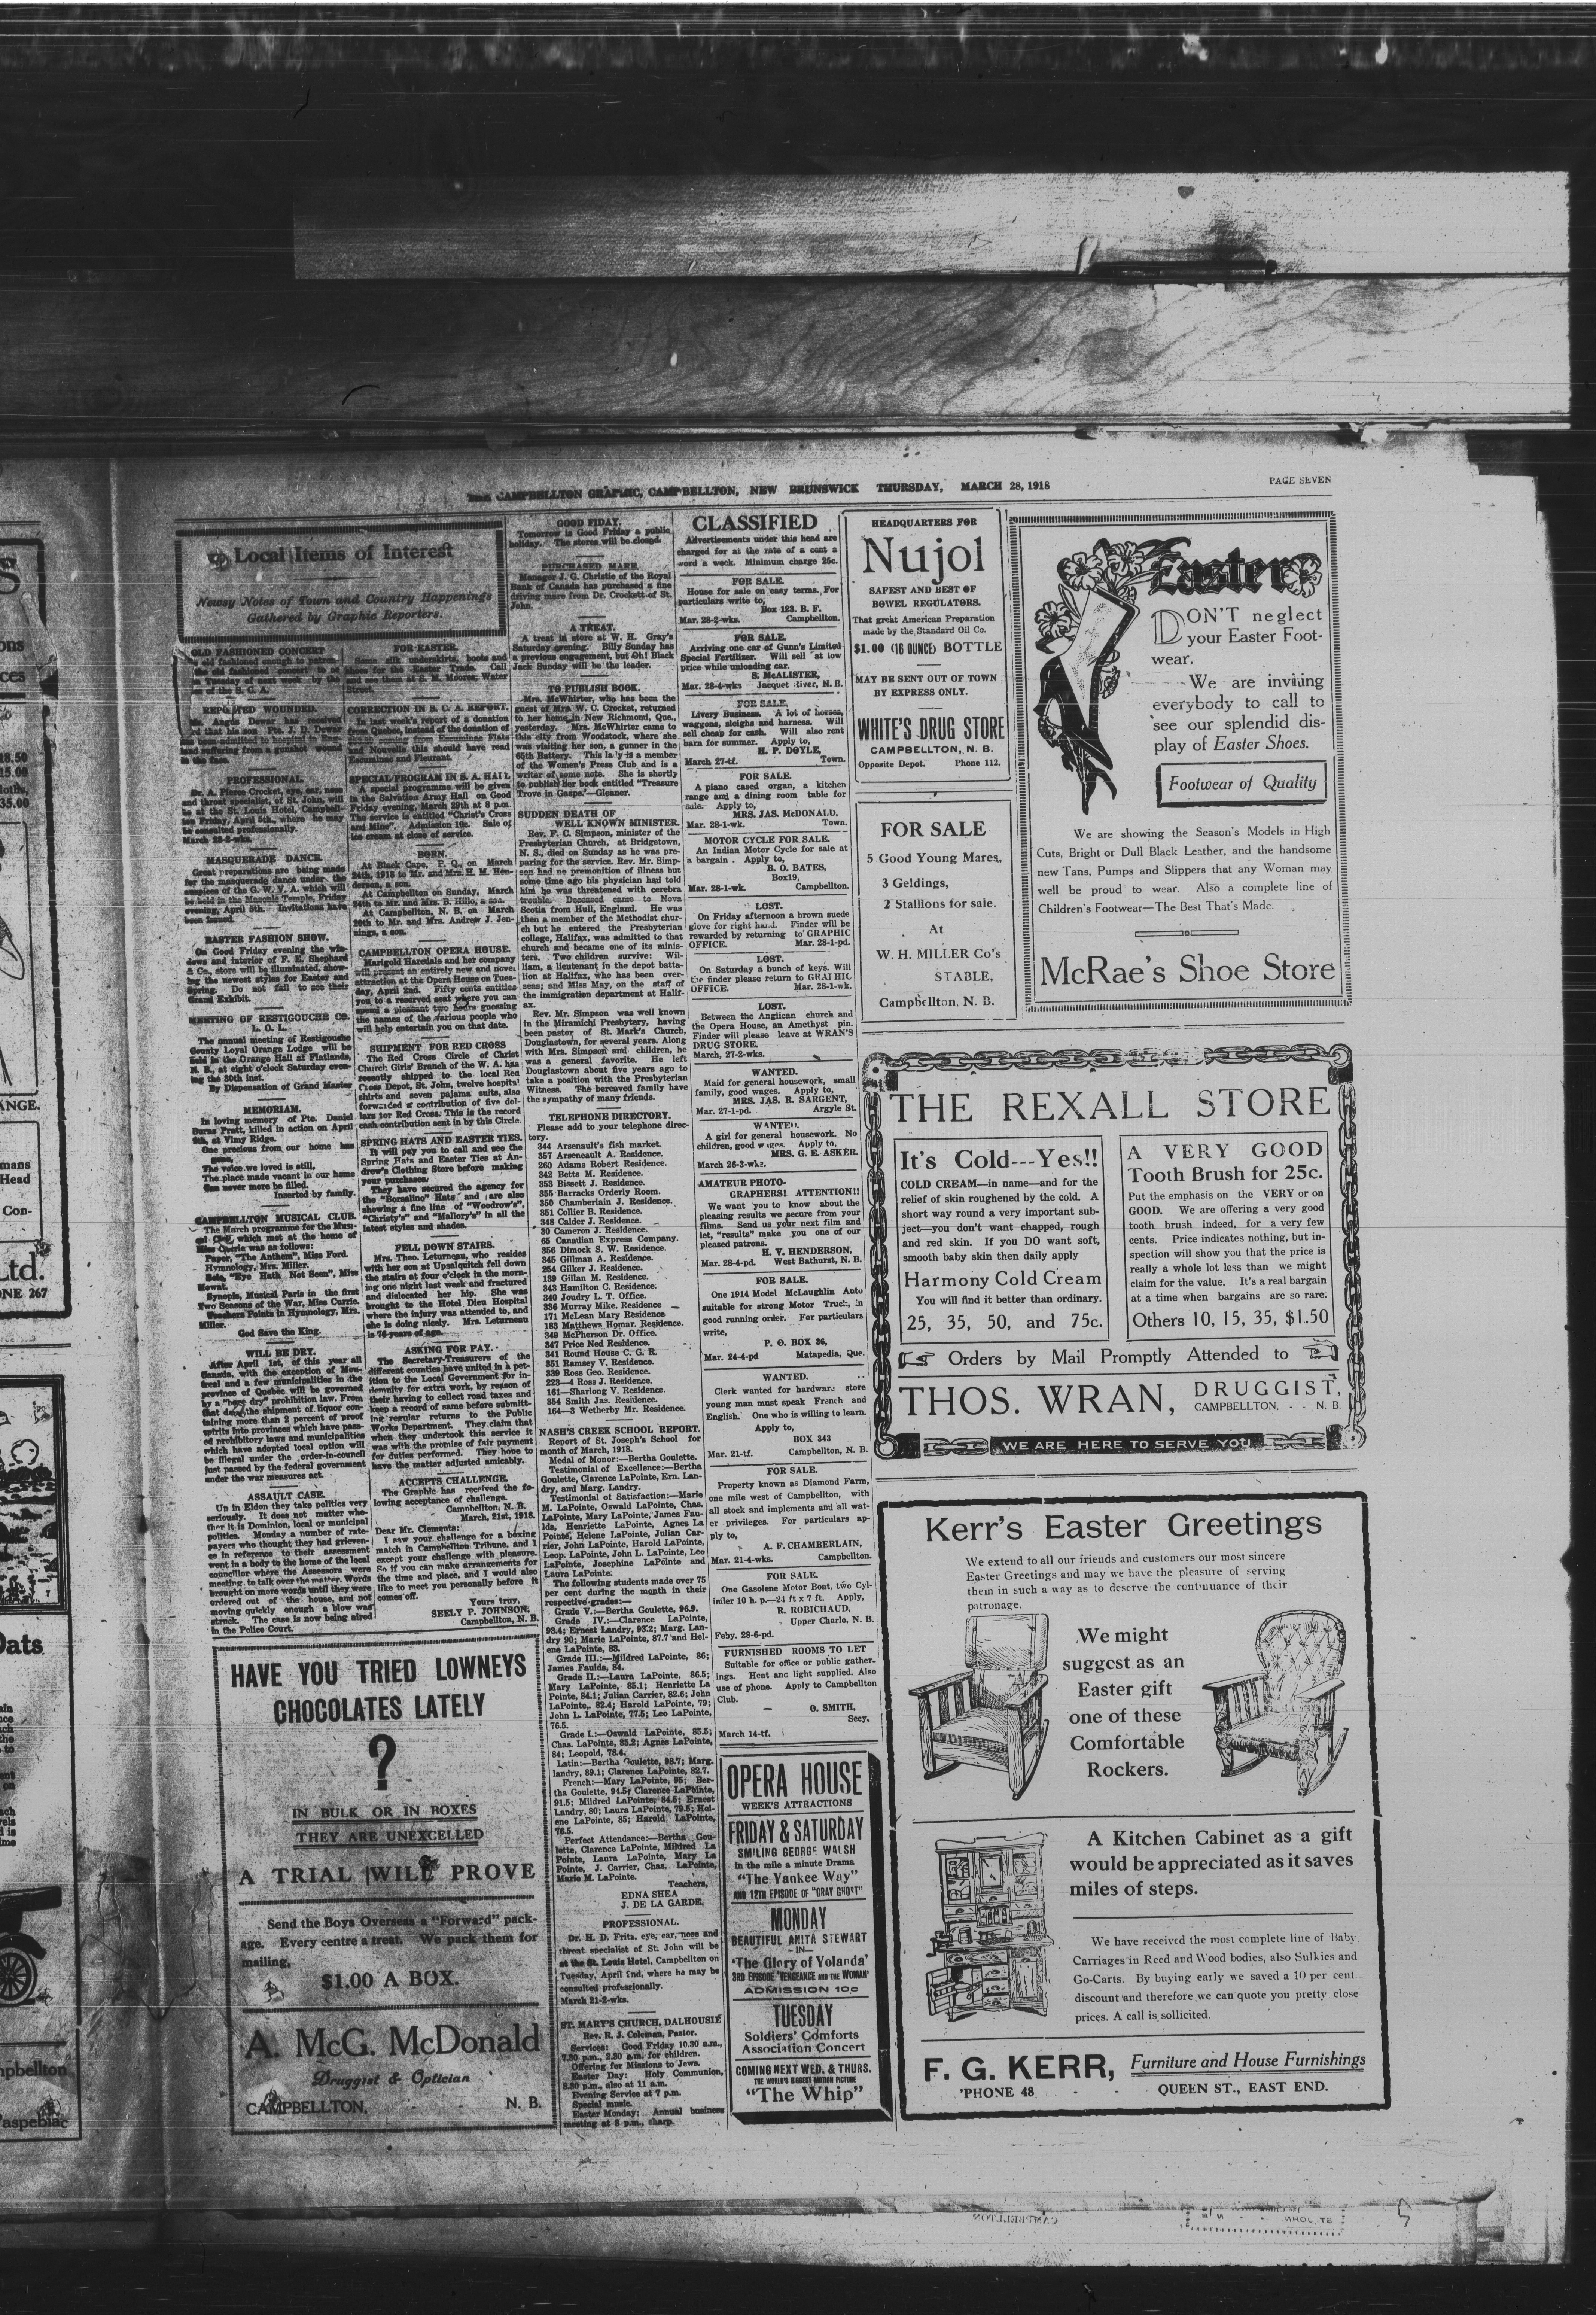 THE CAMPBELLTON GRAPHIC, CAMPBELLTON, NEW BRUNSWICK THURSDAY, MARCH 28, 1918
PAGE SEVEN
Local Items of Interest
Newsy Notes of Town and Country Happenings
Gathered by Graphic Reporters.
OLD FASHIONED CONCERT
REPORTED WOUNDED.
PROFESSIONAL.
Dr. A. Pierce Crocket, eye, ear, nose
and throat specialist, of St. John, will
be at the St. Louis Hotel, Campbell-
ton Friday, April 5th., where he may
be consulted professionally.
MASQUERADE DANCE.
Great preparations are being made
for the masquerade dance under the
auspices of the G. W. V. A. which will
be held in the Masonic Temple, Friday
evening, April 5th. Invitations have
been issued.
EASTER FASHION SHOW.
On Good Friday evening the win-
dows and interior of F. E. Shephard
& Co., store will be illuminated, show-
ing the newest styles for Easter and
Spring. Do not fail to see their
Grand Exhibit.
MEETING OF RESTIGOUCHE CO.
L. O. L.
The annual meeting of Restigouche
County Loyal Orange Lodge will be
held in the Orange Hall at Flatlands,
N. B., at eight o'clock Saturday even-
ing the 30th inst.
By Dispensation of Grand Master
MEMORIAM.
In loving memory of Pte. Daniel
Burns Pratt, killed in action on April
9th, at Vimy Ridge.
One precious from our home has
gone,
The voice we loved is still,
The place made vacant in our home
Can never more be filled.
Inserted by family.
CAMPBELLTON MUSICAL CLUB.
The March programme for the Musi-
cal Club, which met at the home of
Miss Currie was as follows:
Paper, "The Anthem", Miss Ford.
Hymnology, Mrs. Miller.
Solo, "Eye Hath Not Seen", Miss
Mowat.
Synopis, Musical Paris in the first
Two Seasons of the War, Miss Currie.
Teachers Points in Hymnology, Mrs.
Miller.
God Save the King.
WILL BE DRY.
After April 1st, of this year all
Canada, with the exception of Mon-
treal and a few municipalities in the
province of Quebec will be governed
by a "bone dry" prohibition law. From
that date the shipment of liquor con-
taining more than 2 percent of proof
spirits into provinces which have pass-
ed prohibitory laws and municipalities
which have adopted local option will
be illegal under the order-in-council
just passed by the federal government
under the war measures act.
ASSAULT CASE.
Up in Eldon they take politics very
seriously. It does not matter whe-
ther it is Dominion, local or municipal
politics. Monday a number of rate-
payers who thought they had grievan-
ces in reference to their assessment
went in a body to the home of the local
councillor where the Assessors were
meeting, to talk over the matter. Words
brought on more words until they were
ordered out of the house, and not
moving quickly enough a blow was
struck. The case is now being aired
in the Police Court.
FOR EASTER.
Some silk underskirts, boots and
shoes for the Easter Trade. Call
and see them at S. M. Moores, Water
Street.
CORRECTION IN B. C. A. REPORT.
In last week's report of a donation
from Quebec, instead of the donation of
Escuminac and Fleurant.
SPECIAL PROGRAM IN S. A. HALL
A special programme will be given
in the Salvation Army Hall on Good
Friday evening, March 29th at 8 p.m.
The service is entitled "Christ's Cross
and Mine". Admission 10c. Sale of
ice cream at close of service.
BORN.
At Black Cape, P. Q., on March
24th, 1918 to Mr. and Mrs. H. M. Hen-
derson, a son.
At Campbellton on Sunday, March
24th to Mr. and Mrs. B. Hillo, a son.
At Campbellton, N. B. on March
20th to Mr. and Mrs. Andrew J. Jen-
nings, a son.
CAMPBELLTON OPERA HOUSE.
Marigold Haredale and her company
will present an entirely new and novel
attraction at the Opera House on Tues-
day, April 2nd. Fifty cents entitles
you to a reserved seat where you can
spend a pleasant two hours guessing
the names of the various people who
will help entertain you on that date.
SHIPMENT FOR RED CROSS
The Red Cross Circle of Christ
Church Girls' Branch of the W. A. has
recently shipped to the local Red
Cross Depot, St. John, twelve hospital
shirts and seven pajama suits, also
forwarded a contribution of five dol-
lars for Red Cross. This is the record
cash contribution sent in by this Circle.
SPRING HATS AND EASTER TIES.
It will pay you to call and see the
Spring Hats and Easter Ties at An-
drew's Clothing Store before making
your purchases.
They have secured the agency for
the "Borsalino" Hats and are also
showing a fine line of "Woodrow's",
"Christy's" and "Mallory's" in all the
latest styles and shades.
FELL DOWN STAIRS.
Mrs. Theo. Leturneau, who resides
with her son at Upsalquitch fell down
the stairs at four o'clock in the morn-
ing one night last week and fractured
and dislocated her hip. She was
brought to the Hotel Dieu Hospital
where the injury was attended to, and
she is doing nicely. Mrs. Leturneau
is 76 years of age.
ASKING FOR PAY.
The Secretary-Treasurers of the
different counties have united in a pet-
ition to the Local Government for in-
demnity for extra work, by reason of
their having to collect road taxes and
keep a record of same before submitt-
ing regular returns to the Public
Works Department. They claim that
when they undertook this service it
was with the promise of fair payment
for duties performed. They hope to
have the matter adjusted amicably.
ACCEPTS CHALLENGE.
The Graphic has received the fo-
lowing acceptance of challenge.
Campbellton, N. B.
March, 21st, 1918.
Dear Mr. Clements:
I saw your challenge for a boxing
match in Campbellton Tribune, and I
except your challenge with pleasure.
So if you can make arrangements for
the time and place, and I would also
like to meet you personally before it
comes off.
Yours truy,
SEELY P. JOHNSON,
Campbellton, N. B.
HAVE YOU TRIED LOWNEYS
CHOCOLATES LATELY
?
IN BULK OR IN BOXES
THEY ARE UNEXCELLED
A TRIAL WILL PROVE
Send the Boys Overseas a "Forward" pack-
age. Every centre a treat. We pack them for
mailing,
$1.00 A BOX.
A. McG. McDonald
Druggist & Optician
CAMPBELLTON, N. B.
GOOD FIDAY.
Tomorrow is Good Friday a public
holiday. The stores will be closed.
PURCHASED MARE.
Manager J. G. Christie of the Royal
Bank of Canada has purchased a fine
driving mare from Dr. Crockett of St.
John.
A TREAT.
A treat in store at W. H. Gray's
Saturday evening. Billy Sunday has
a previous engagement, but Oh! Black
Jack Sunday will be the leader.
TO PUBLISH BOOK.
Mrs. McWhirter, who has been the
guest of Mrs. W. C. Crocket, returned
to her home in New Richmond, Que.,
yesterday. Mrs. McWhirter came to
this city from Woodstock, where she
was visiting her son, a gunner in the
65th Battery. This lady is a member
of the Women's Press Club and is a
writer of some note. She is shortly
to publish her book entitled "Treasure
Trove in Gaspe."—Gleaner.
SUDDEN DEATH OF
WELL KNOWN MINISTER.
Rev. F. C. Simpson, minister of the
Presbyterian Church, at Bridgetown,
N. S., died on Sunday as he was pre-
paring for the service. Rev. Mr. Simp-
son had no premonition of illness but
some time ago his physician had told
him he was threatened with cerebra
trouble. Deceased came to Nova
Scotia from Hull, England. He was
then a member of the Methodist chur-
ch but he entered the Presbyterian
college, Halifax, was admitted to that
church and became one of its minis-
ters. Two children survive: Wil-
liam, a lieutenant in the depot batta-
lion at Halifax, who has been over-
seas; and Miss May, on the staff of
the immigration department at Halif-
ax.
Rev. Mr. Simpson was well known
in the Miramichi Presbytery, having
been pastor of St. Mark's Church,
Douglastown, for several years. Along
with Mrs. Simpson and children, he
was a general favorite. He left
Douglastown about five years ago to
take a position with the Presbyterian
Witness. The bereaved family have
the sympathy of many friends.
TELEPHONE DIRECTORY.
Please add to your telephone direc-
tory.
344 Arsenault's fish market.
357 Arseneault A. Residence.
260 Adams Robert Residence.
342 Betts M. Residence.
353 Bissett J. Residence.
355 Barracks Orderly Room.
350 Chamberlain J. Residence.
351 Collier B. Residence.
348 Calder J. Residence.
30 Cameron J. Residence.
65 Canadian Express Company.
356 Dimock S. W. Residence.
345 Gillman A. Residence.
254 Gilker J. Residence.
189 Gillan M. Residence.
343 Hamilton C. Residence.
340 Joudry L. T. Office.
336 Murray Mike. Residence
171 McLean Mary Residence
183 Matthews Homar. Residence.
349 McPherson Dr. Office.
347 Price Ned Residence.
341 Round House C. G. R.
351 Ramsey V. Residence.
339 Ross Geo. Residence.
223—4 Ross J. Residence.
161—Sharlong V. Residence.
354 Smith Jas. Residence.
164—3 Wetherby Mr. Residence.
NASH'S CREEK SCHOOL REPORT.
Report of St. Joseph's School for
month of March, 1918.
Medal of Monor:—Bertha Goulette.
Testimonial of Excellence:—Bertha
Goulette, Clarence LaPointe, Ern. Lan-
dry, and Marg. Landry.
Testimonial of Satisfaction:—Marie
M. LaPointe, Oswald LaPointe, Chas.
LaPointe, Mary LaPointe, James Fau-
lds, Henriette LaPointe, Agnes La
Pointe, Helene LaPointe, Julian Car-
rier, John LaPointe, Harold LaPointe,
Leop. LaPointe, John L. LaPointe, Leo
LaPointe, Josephine LaPointe and
Laura LaPointe.
The following students made over 75
per cent during the month in their
respective grades:—
Grade V.:—Bertha Goulette, 96.9.
Grade IV.:—Clarence LaPointe,
93.4; Ernest Landry, 93.2; Marg. Lan-
dry 90; Marie LaPointe, 87.7 and Hel-
ene LaPointe, 83.
Grade III.:—Mildred LaPointe, 86;
James Faulds, 84.
Grade II.:—Laura LaPointe, 86.5;
Mary LaPointe, 85.1; Henriette La
Pointe, 84.1; Julian Carrier, 82.6; John
LaPointe, 82.4; Harold LaPointe, 79;
John L. LaPointe, 77.5; Leo LaPointe,
76.5.
Grade I.:—Oswald LaPointe, 85.5;
Chas. LaPointe, 85.2; Agnes LaPointe,
84; Leopold, 78.4.
Latin:—Bertha Goulette, 98.7; Marg.
landry, 89.1; Clarence LaPointe, 82.7.
French:—Mary LaPointe, 95; Ber-
tha Goulette, 94.5; Clarence LaPointe,
91.5; Mildred LaPointe, 84.5; Ernest
Landry, 80; Laura LaPointe, 79.5; Hel-
ene LaPointe, 85; Harold LaPointe,
76.5.
Perfect Attendance:—Bertha Gou-
lette, Clarence LaPointe, Mildred La
Pointe, Laura LaPointe, Mary La
Pointe, J. Carrier, Chas. LaPointe,
Marie M. LaPointe.
Teachers,
EDNA SHEA
J. DE LA GARDE.
PROFESSIONAL.
Dr. H. D. Fritz, eye, ear, nose and
throat specialist of St. John will be
at the St. Louis Hotel, Campbellton on
Tuesday, April 2nd, where he may be
consulted professionally.
March 21-2-wks.
ST. MARY'S CHURCH, DALHOUSIE
Rev. R. J. Coleman, Pastor.
Services: Good Friday 10.30 a.m.,
7.30 p.m., 2.30 a.m. for children.
Offering for Missions to Jews.
Easter Day: Holy Communion,
8.30 p.m., also at 11 a.m.
Evening Service at 7 p.m.
Special music.
Easter Monday: Annual business
meeting at 8 p.m., sharp.
CLASSIFIED
Advertisements under this head are
charged for at the rate of a cent a
word a week. Minimum charge 25c.
FOR SALE.
House for sale on easy terms. For
particulars write to,
Box 123. B. F.
Mar. 28-2-wks. Campbellton.
FOR SALE.
Arriving one car of Gunn's Limited
Special Fertilizer. Will sell at low
price while unloading car.
S. McALISTER,
Mar. 28-4-wks Jacquet River, N. B.
FOR SALE.
Livery Business. A lot of horses,
waggons, sleighs and harness. Will
sell cheap for cash. Will also rent
barn for summer. Apply to,
H. P. DOYLE,
March 27-tf. Town.
FOR SALE.
A piano cased organ, a kitchen
range and a dining room table for
sale. Apply to,
MRS. JAS. McDONALD,
Mar. 28-1-wk. Town.
MOTOR CYCLE FOR SALE.
An Indian Motor Cycle for sale at
a bargain. Apply to,
B. O. BATES,
Box19,
Mar. 28-1-wk. Campbellton.
LOST.
On Friday afternoon a brown suede
glove for right hand. Finder will be
rewarded by returning to GRAPHIC
OFFICE. Mar. 28-1-pd.
LOST.
On Saturday a bunch of keys. Will
the finder please return to GRAPHIC
OFFICE. Mar. 28-1-wk.
LOST.
Between the Anglican church and
the Opera House, an Amethyst pin.
Finder will please leave at WRAN'S
DRUG STORE.
March, 27-2-wks.
WANTED.
Maid for general housework, small
family, good wages. Apply to,
MRS. JAS. R. SARGENT,
Mar. 27-1-pd. Argyle St.
WANTED.
A girl for general housework. No
children, good wages. Apply to,
MRS. G. E. ASKER.
March 26-3-wks.
AMATEUR PHOTO-
GRAPHERS! ATTENTION!!
We want you to know about the
pleasing results we secure from your
films. Send us your next film and
let, "results" make you one of our
pleased patrons.
H. V. HENDERSON,
Mar. 28-4-pd. West Bathurst, N. B.
FOR SALE.
One 1914 Model McLaughlin Auto
suitable for strong Motor Truck, in
good running order. For particulars
write,
P. O. BOX 36,
Mar. 24-4-pd Matapedia, Que.
WANTED.
Clerk wanted for hardware store
young man must speak French and
English. One who is willing to learn.
Apply to,
BOX 343
Mar. 21-tf. Campbellton, N. B.
FOR SALE.
Property known as Diamond Farm,
one mile west of Campbellton, with
all stock and implements and all wat-
er privileges. For particulars ap-
ply to,
A. F. CHAMBERLAIN,
Mar. 21-4-wks. Campbellton.
FOR SALE.
One Gasolene Motor Boat, two Cyl-
inder 10 h. p.—24 ft x 7 ft. Apply,
R. ROBICHAUD,
Upper Charlo, N. B.
Feby. 28-6-pd.
FURNISHED ROOMS TO LET
Suitable for office or public gather-
ings. Heat and light supplied. Also
use of phone. Apply to Campbellton
Club.
O. SMITH,
Secy.
March 14-tf.
OPERA HOUSE
WEEK'S ATTRACTIONS
FRIDAY & SATURDAY
SMILING GEORGE WALSH
In the mile a minute Drama
"The Yankee Way"
AND 12TH EPISODE OF "GRAY GHOST"
MONDAY
BEAUTIFUL ANITA STEWART
—IN—
'The Glory of Yolanda'
3RD EPISODE 'VENGEANCE AND THE WOMAN'
ADMISSION 10c
TUESDAY
Soldiers' Comforts
Association Concert
COMING NEXT WED. & THURS.
THE WORLD'S BIGGEST MOTION PICTURE
"The Whip"
HEADQUARTERS FOR
Nujol
SAFEST AND BEST OF
BOWEL REGULATORS.
That great American Preparation
made by the Standard Oil Co.
$1.00 (16 OUNCE) BOTTLE
MAY BE SENT OUT OF TOWN
BY EXPRESS ONLY.
WHITE'S DRUG STORE
CAMPBELLTON, N. B.
Opposite Depot. Phone 112.
FOR SALE
5 Good Young Mares,
3 Geldings,
2 Stallions for sale.
At
W. H. MILLER Co's
STABLE,
Campbellton, N. B.
Easter
DON'T neglect
your Easter Foot-
wear.
We are inviting
everybody to call to
see our splendid dis-
play of Easter Shoes.
Footwear of Quality
We are showing the Season's Models in High
Cuts, Bright or Dull Black Leather, and the handsome
new Tans, Pumps and Slippers that any Woman may
well be proud to wear. Also a complete line of
Children's Footwear—The Best That's Made.
McRae's Shoe Store
THE REXALL STORE
It's Cold---Yes!!
COLD CREAM—in name—and for the
relief of skin roughened by the cold. A
short way round a very important sub-
ject—you don't want chapped, rough
and red skin. If you DO want soft,
smooth baby skin then daily apply
Harmony Cold Cream
You will find it better than ordinary.
25, 35, 50, and 75c.
A VERY GOOD
Tooth Brush for 25c.
Put the emphasis on the VERY or on
GOOD. We are offering a very good
tooth brush indeed, for a very few
cents. Price indicates nothing, but in-
spection will show you that the price is
really a whole lot less than we might
claim for the value. It's a real bargain
at a time when bargains are so rare.
Others 10, 15, 35, $1.50
Orders by Mail Promptly Attended to
THOS. WRAN, DRUGGIST,
CAMPBELLTON. - - N. B.
WE ARE HERE TO SERVE YOU
Kerr's Easter Greetings
We extend to all our friends and customers our most sincere
Easter Greetings and may we have the pleasure of serving
them in such a way as to deserve the continuance of their
patronage.
We might
suggest as an
Easter gift
one of these
Comfortable
Rockers.
A Kitchen Cabinet as a gift
would be appreciated as it saves
miles of steps.
We have received the most complete line of Baby
Carriages in Reed and Wood bodies, also Sulkies and
Go-Carts. By buying early we saved a 10 per cent
discount and therefore we can quote you pretty close
prices. A call is sollicited.
F. G. KERR, Furniture and House Furnishings
'PHONE 48 - - QUEEN ST., EAST END.